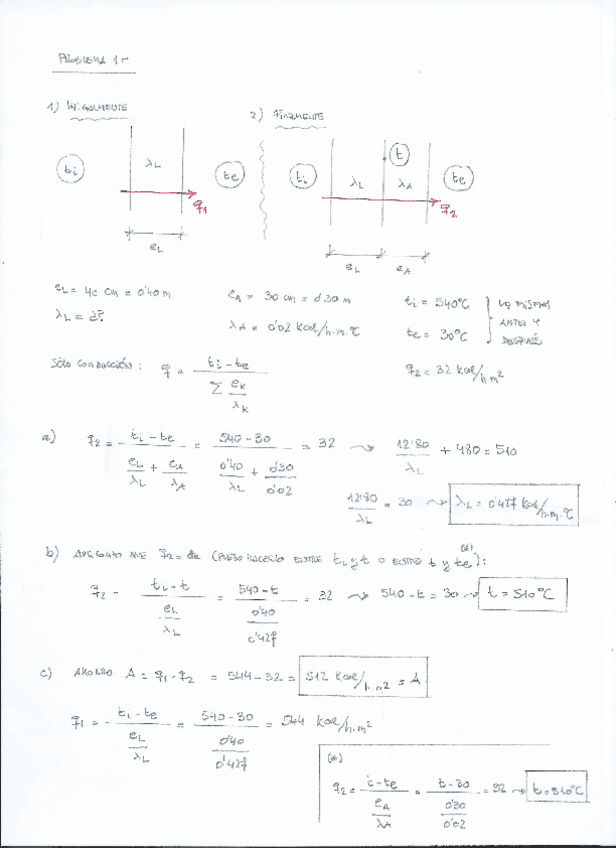 PROBLEMA 1
1) INICIALMENTE
2) FINALMENTE
ti λL te q1 eL
ti λL t λA te q2 eL eA
eL = 40 cm = 0'40 m
λL = ¿?
eA = 30 cm = 0'30 m
λA = 0'02 Kcal/h·m·°C
ti = 540°C
te = 30°C
LO MISMO ANTES Y DESPUÉS
q2 = 32 Kcal/h·m²
SÓLO CONDUCCIÓN: q = (ti - te) / (Σ eK/λK)
a) q2 = (ti - te) / (eL/λL + eA/λA) = (540 - 30) / (0'40/λL + 0'30/0'02) = 32 ⇝ 12'80/λL + 480 = 510
12'80/λL = 30 ⇝ λL = 0'427 Kcal/h·m·°C
b) q2 = cte (PUEDO HACERLO ENTRE ti y t o ENTRE t y te (*)):
q2 = (ti - t) / (eL/λL) = (540 - t) / (0'40/0'427) = 32 ⇝ 540 - t = 30 ⇝ t = 510°C
c) AHORRO A = q1 - q2 = 544 - 32 = 512 Kcal/h·m² = A
q1 = (ti - te) / (eL/λL) = (540 - 30) / (0'40/0'427) = 544 Kcal/h·m²
(*)
q2 = (t - te) / (eA/λA) = (t - 30) / (0'30/0'02) = 32 ⇝ t = 510°C